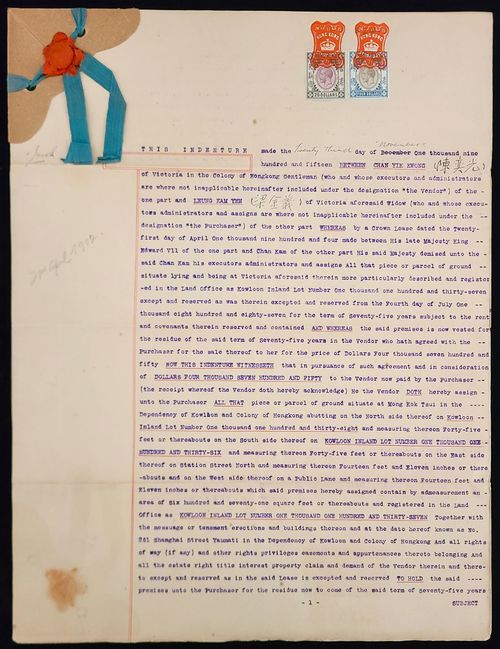 HONG KONG HONG KONG
THIS INDENTURE made the Twenty third day of December November One thousand nine
hundred and fifteen BETWEEN CHAN YIK KWONG (陳奕光)
of Victoria in the Colony of Hongkong Gentleman (who and whose executors and administrators
are where not inapplicable hereinafter included under the designation "the Vendor") of the
one part and LEUNG KAM YEE (梁金義) of Victoria aforesaid Widow (who and whose execu-
tors administrators and assigns are where not inapplicable hereinafter included under the --
designation "the Purchaser") of the other part WHEREAS by a Crown Lease dated the Twenty-
first day of April One thousand nine hundred and four made between His late Majesty King --
Edward VII of the one part and Chan Kam of the other part His said Majesty demised unto the --
said Chan Kam his executors administrators and assigns All that piece or parcel of ground --
situate lying and being at Victoria aforesaid therein more particularly described and register-
-ed in the Land Office as Kowloon Inland Lot Number One thousand one hundred and thirty-seven
except and reserved as was therein excepted and reserved from the Fourth day of July One ---
thousand eight hundred and eighty-seven for the term of Seventy-five years subject to the rent
and covenants therein reserved and contained AND WHEREAS the said premises is now vested for
the residue of the said term of Seventy-five years in the Vendor who hath agreed with the --
Purchaser for the sale thereof to her for the price of Dollars Four thousand seven hundred and
fifty NOW THIS INDENTURE WITNESSETH that in pursuance of such agreement and in consideration
of DOLLARS FOUR THOUSAND SEVEN HUNDRED AND FIFTY to the Vendor now paid by the Purchaser --
(the receipt whereof the Vendor doth hereby acknowledge) He the Vendor DOTH hereby assign --
unto the Purchaser ALL THAT piece or parcel of ground situate at Mong Kok Tsui in the -----
Dependency of Kowloon and Colony of Hongkong abutting on the North side thereof on Kowloon ---
Inland Lot Number One thousand one hundred and thirty-eight and measuring thereon Forty-five --
feet or thereabouts on the South side thereon on KOWLOON INLAND LOT NUMBER ONE THOUSAND ONE -
HUNDRED AND THIRTY-SIX and measuring thereon Forty-five feet or thereabouts on the East side
thereof on Station Street North and measuring thereon Fourteen feet and Eleven inches or there
-abouts and on the West side thereof on a Public Lane and measuring thereon Fourteen feet and -
Eleven inches or thereabouts which said premises hereby assigned contain by admeasurement an --
area of Six hundred and seventy-one square feet or thereabouts and registered in the Land ---
Office as KOWLOON INLAND LOT NUMBER ONE THOUSAND ONE HUNDRED AND THIRTY-SEVEN Together with
the messuage or tenement erections and buildings thereon and at the date hereof known as No.
261 Shanghai Street Yaumati in the Dependency of Kowloon and Colony of Hongkong And all rights
of way (if any) and other rights privileges easements and appurtenances thereto belonging And
all the estate right title interest property claim and demand of the Vendor therein and there-
to except and reserved as in the said Lease is excepted and reserved TO HOLD the said ----
premises unto the Purchaser for the residue now to come of the said term of Seventy-five years
- 1 -
SUBJECT